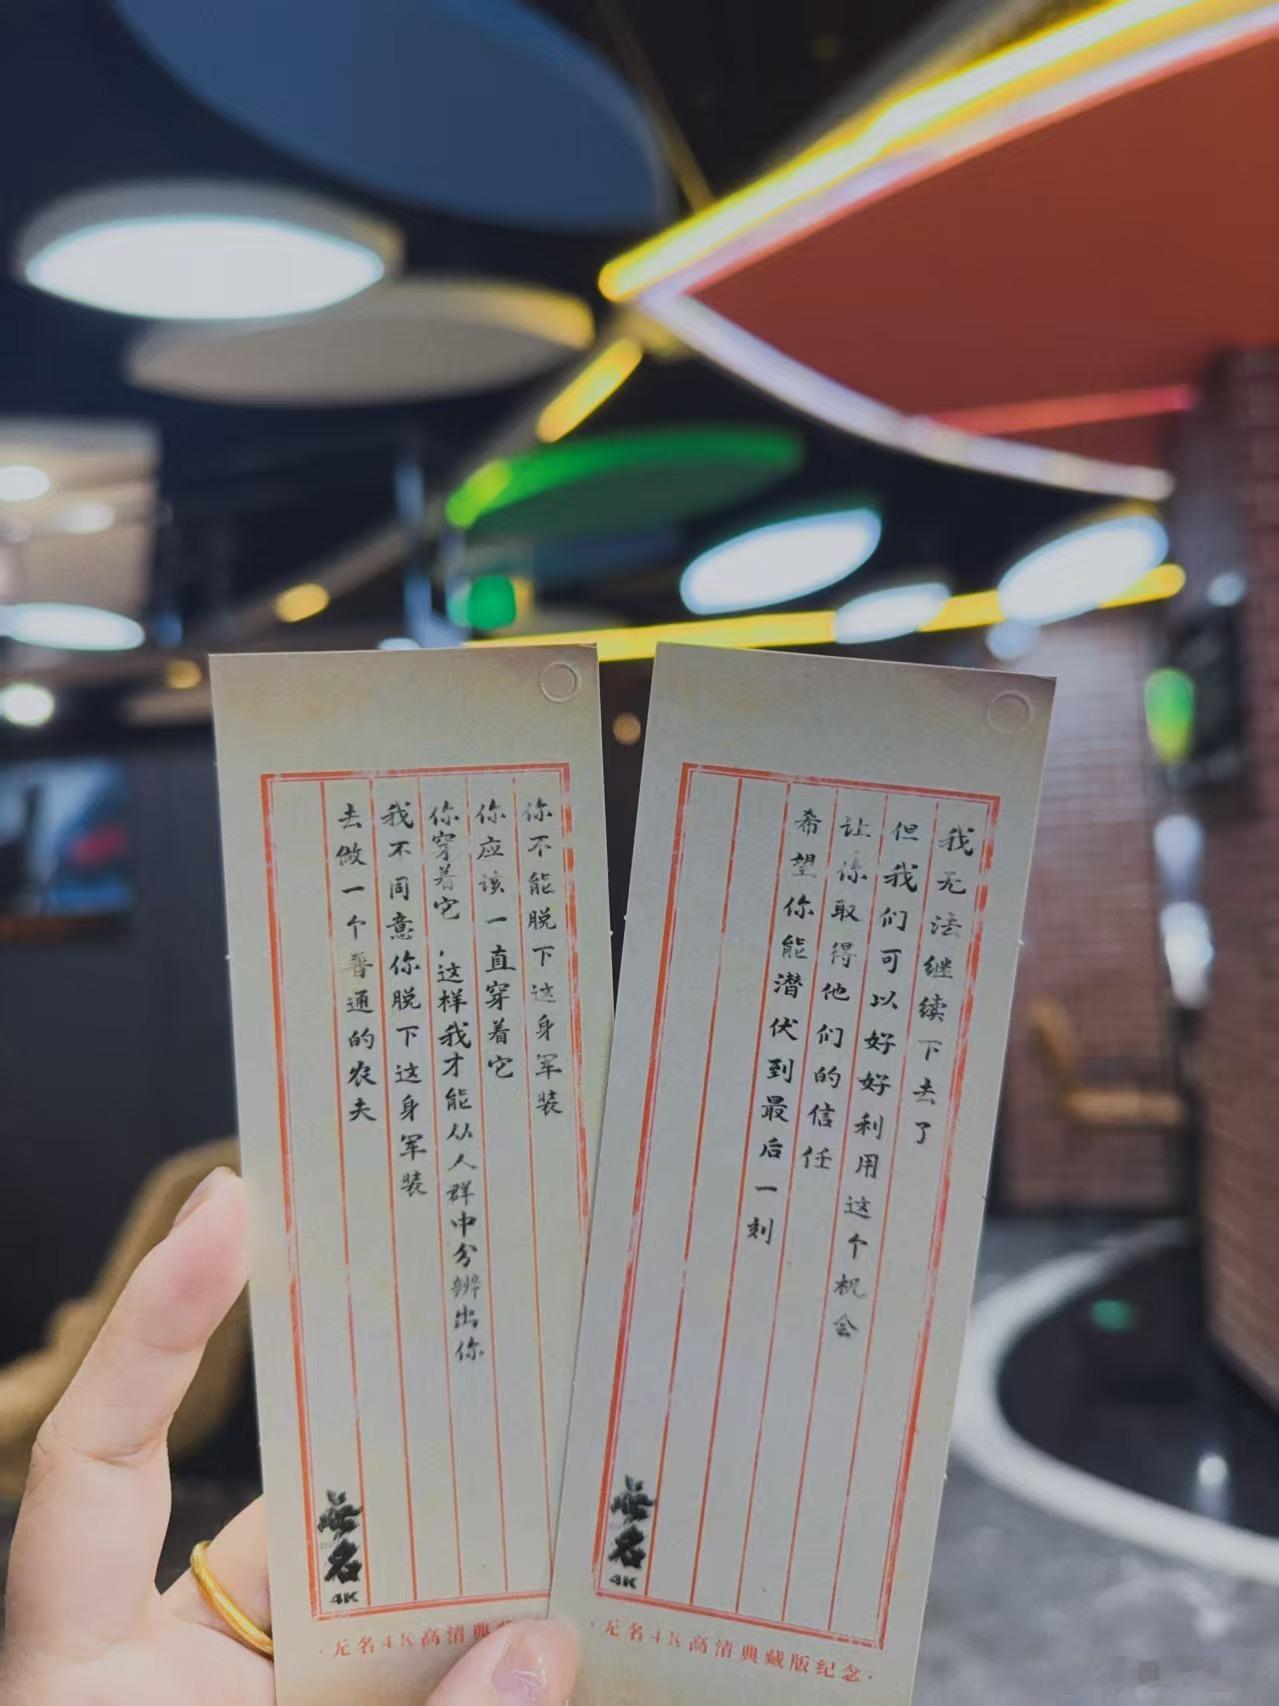 你不能脱下这身军装
你应该一直穿着它
你穿着它，这样我才能从人群中分辨出你
我不同意你脱下这身军装
去做一个普通的农夫
無名
4K
·无名4K高清典
我无法继续下去了
但我们可以好好利用这个机会
让你取得他们的信任
希望你能潜伏到最后一刻
無名
4K
·无名4K高清典藏版纪念·